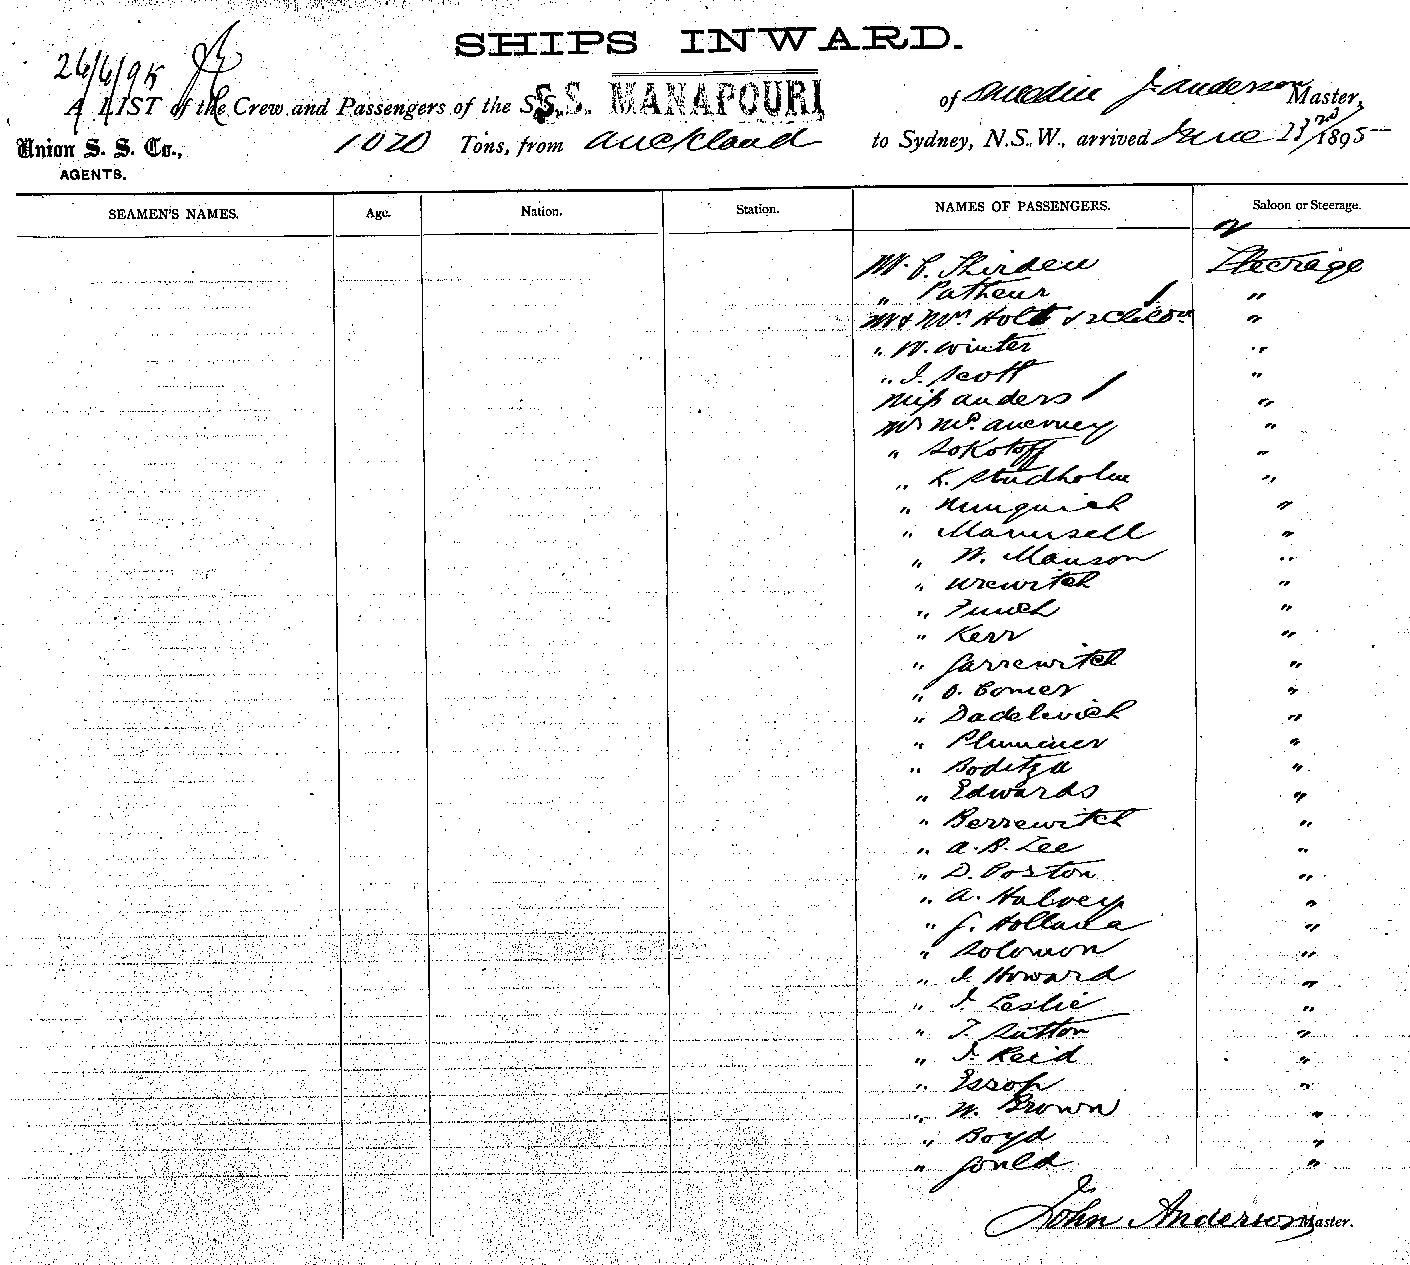 SHIPS INWARD.
26/6/95
A LIST of the Crew and Passengers of the S.S. S.S. MANAPOURI of Dunedin J. Anderson Master,
Union S. S. Co., 1020 Tons, from Auckland to Sydney, N.S.W., arrived June 23rd 1895
AGENTS.
SEAMEN'S NAMES. Age. Nation. Station. NAMES OF PASSENGERS. Saloon or Steerage.
Mr. C. Thirden Steerage
" Patheur "
Mr & Mrs Holt & 2 Children "
" W. Winter "
" J. Scott "
Miss Anders "
Mr McAnerney "
" Sokotoff "
" K. Studholm "
" Nunquich "
" Maunsell "
" W. Manson "
" Urewitch "
" Finch "
" Kerr "
" Garrewitch "
" O. Comer "
" Dadelwich "
" Plummer "
" Boditza "
" Edwards "
" Berrewitch "
" A. B. Lee "
" D. Poston "
" A. Halvey "
" J. Holland "
" Solomon "
" J. Howard "
" J. Leslie "
" T. Sutton "
" J. Reid "
" Essop "
" W. Brown "
" Boyd "
" Gould "
John Anderson Master.